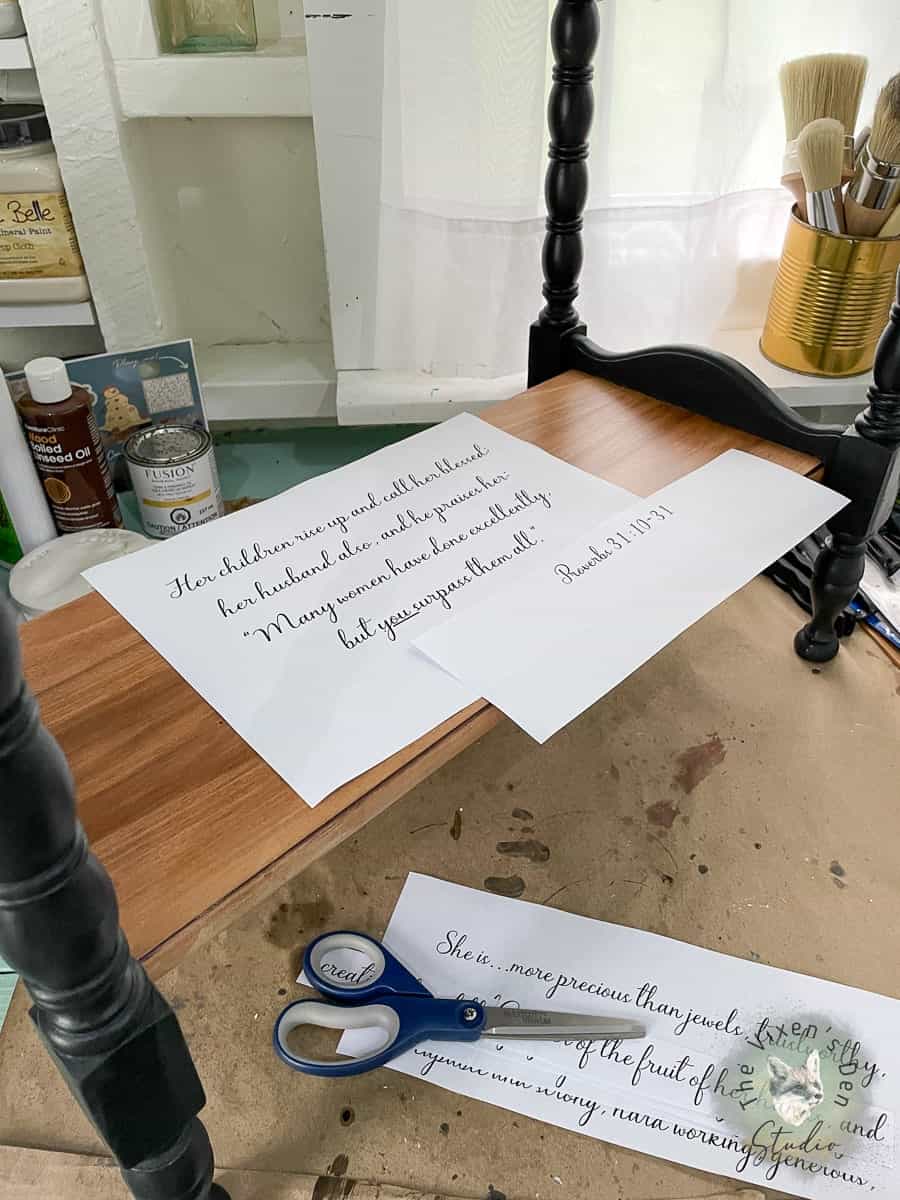 Belle
Mineral Paint
Cloth
Boiled
Linseed Oil
FUSION
CAUTION / ATTENTION
Her children rise up and call her blessed
her husband also, and he praises her:
“Many women have done excellently,
but you surpass them all.”
Proverbs 31:10-31
creati
She is...more precious than jewels,
of the fruit of
and
strong, hard working, generous,
The Vixen's Den
Studio